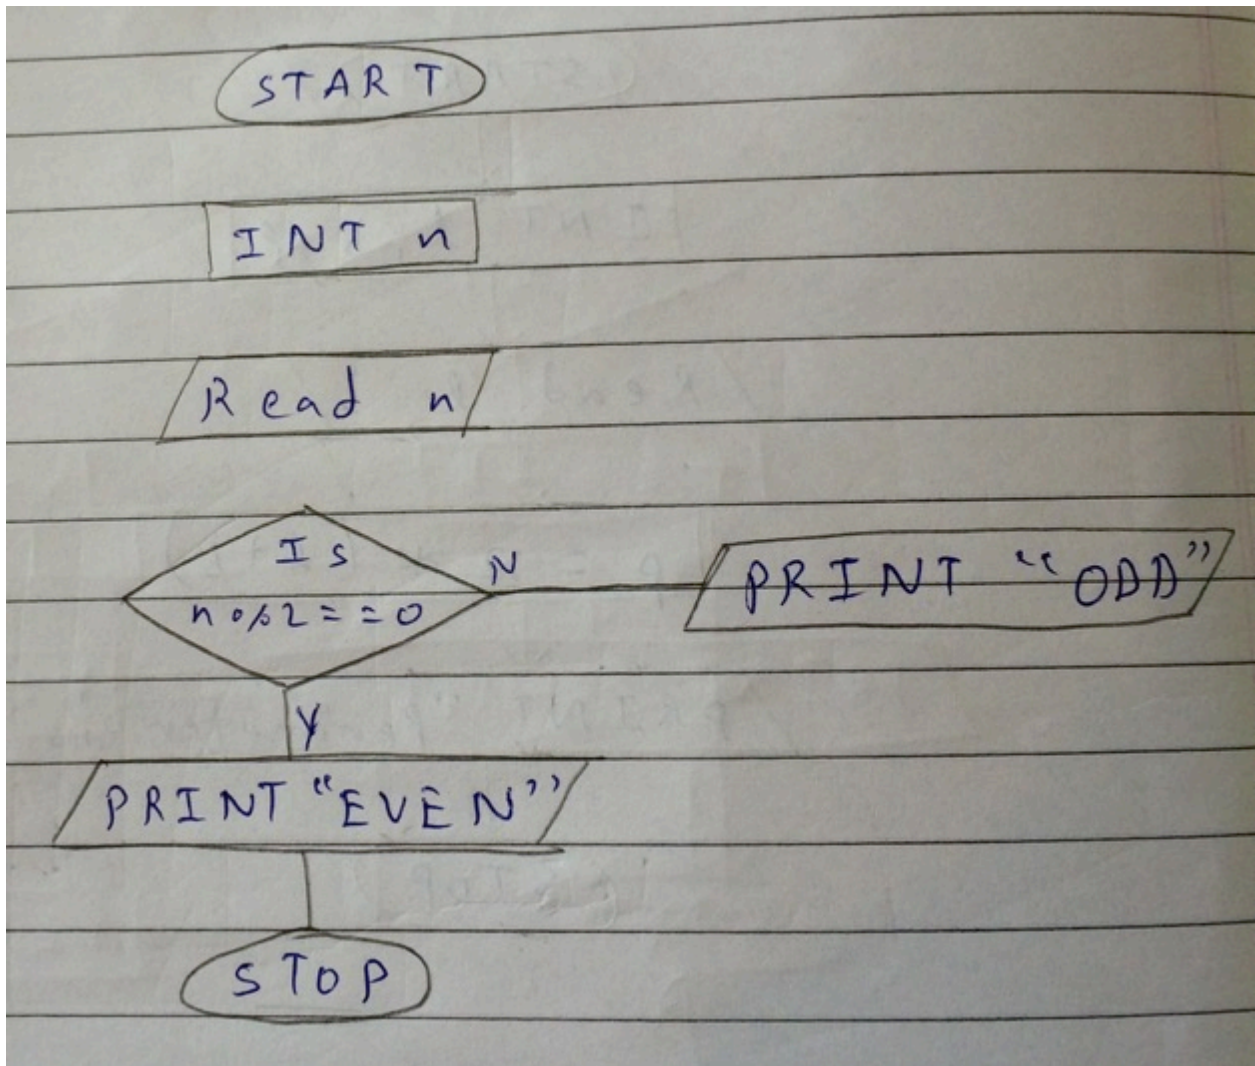 START
INT n
Read n
Is
n%2==0
N
PRINT "ODD"
Y
PRINT "EVEN"
STOP